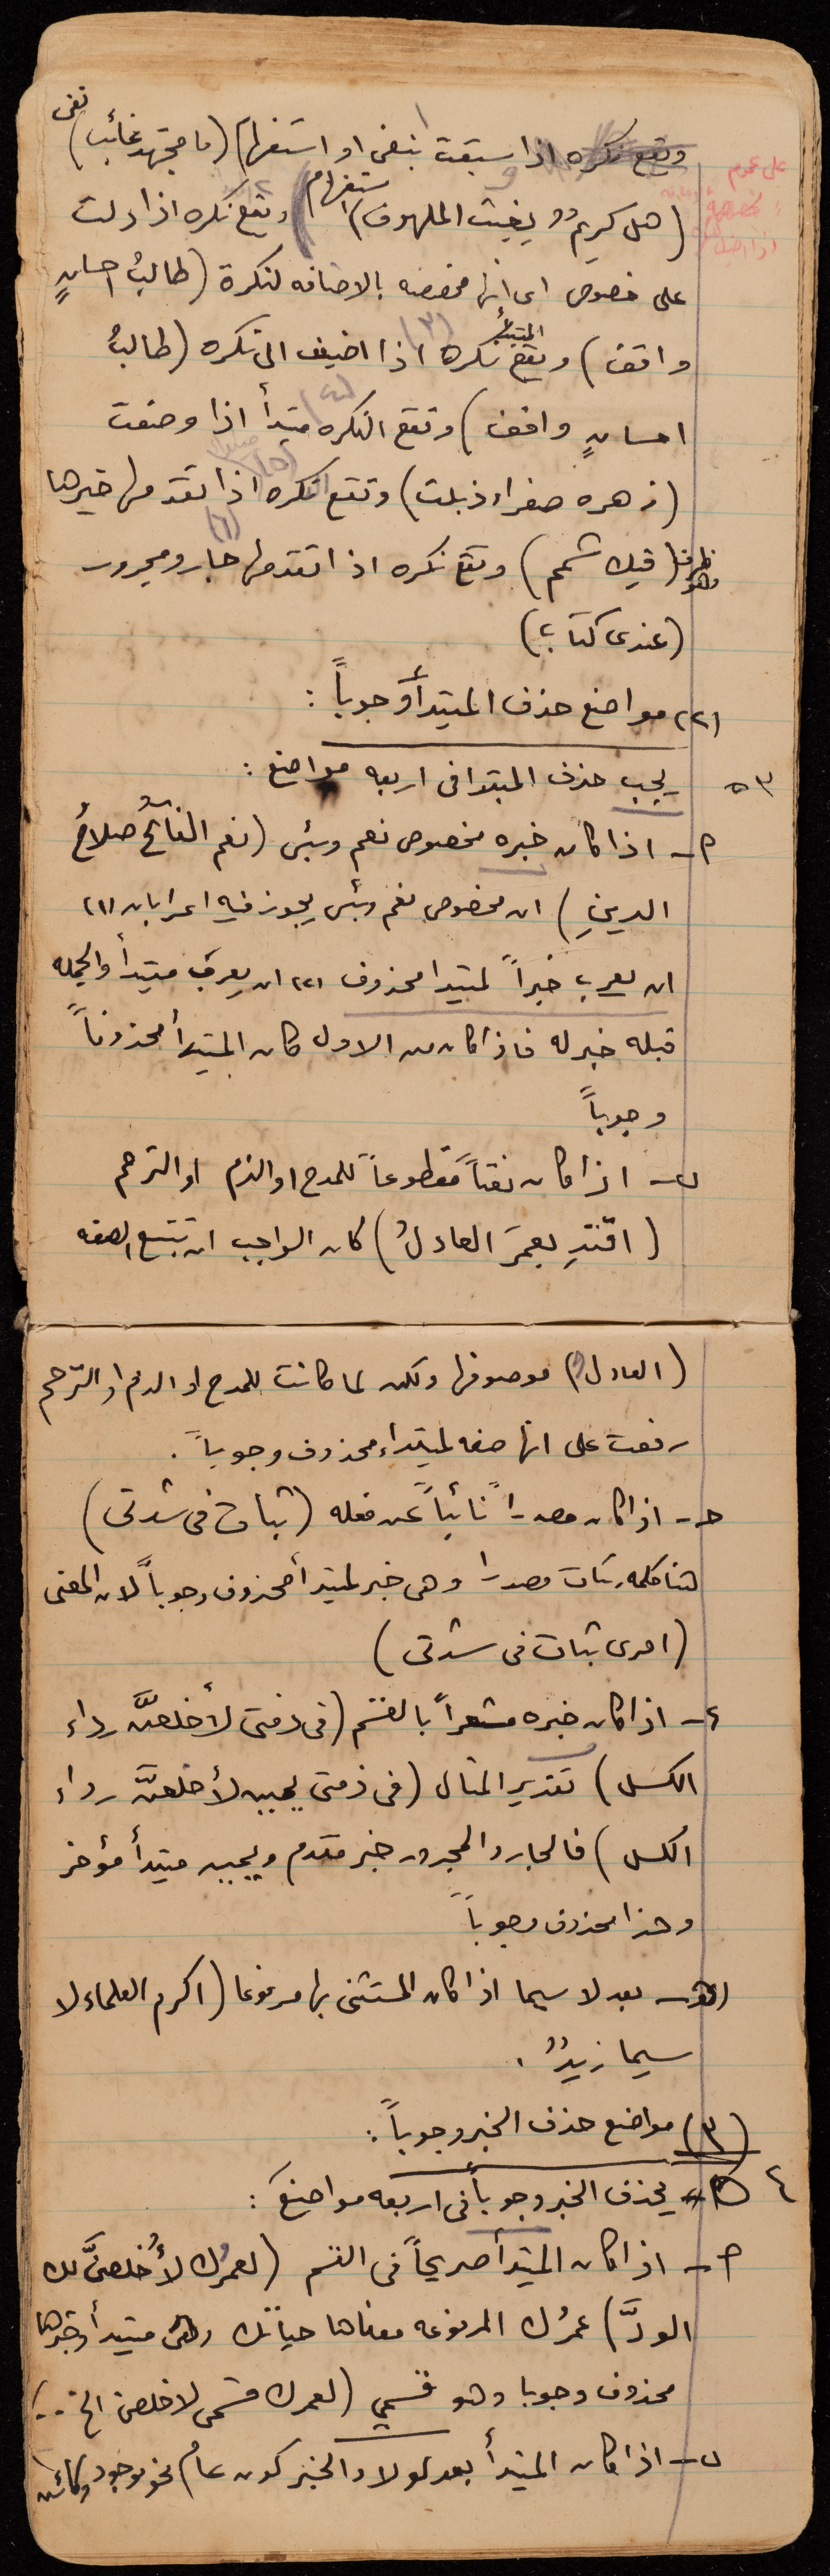 نفى
وتقع نكره اذا سبقت بنفى او استفهام (ما مجتهد غائب)
على عموم
(هل كريمٌ يغيث الملهوف) استفهام وتقع نكره اذا دلت
على خصوص اى انها مخصصه بالاضافه لنكرة (طالبُ احسانٍ
واقف) وتقع المبتدأ نكره (٣) اذا اضيف الى نكره (طالبُ
احسانٍ واقف) وتقع النكره مبتدأ اذا وصفت
(زهره صفراء ذبلت) وتقع نكره اذا تقدمها خبرها
وهو ظرف (قبلك شمم) وتقع نكره اذا تقدمها جار ومجرور
(عندى كتاب)
(٢) مواضع حذف المبتدأ وجوباً :
٣ يجب حذف المبتدا فى اربعه مواضع :
ا- اذا كان خبره مخصوص نعم وبئس (نعم الفاتحُ صلاحُ
الدينِ) ان مخصوص نعم وبئس يجوز فيه اعرابان (١)
ان يعرب خبراً لمبتدا محذوف (٢) ان يعرب مبتدأ والجمله
قبله خبر له فاذا كان من الاول كان المبتدأ محذوفاً
وجوباً
ب- اذا كان نعتاً مقطوعاً للمدح او الذم او الترحم
(اقتدِ بعمرَ العادلُ) كان الواجب ان تتبع الصفه
(العادل) موصوفها ولكن لما كانت للمدح او الذم او الترحم
رفعت على انها صفه لمبتداء محذوف وجوباً.
حـ- اذا كان مصدراً نائباً عن فعله (ثبات فى شدتى)
هنا كلمه ثبات مصدرا وهى خبر لمبتدأ محذوف وجوباً لان المعنى
(امرى ثبات فى شدتى)
ء- اذا كان خبره مشعراً بالقسم (فى ذمتى لأخلعنَّ رداء
الكسل) تقدير المثال (فى ذمتى يمين لأخلعنَّ رداء
الكسل) فالجار والمجرور خبر مقدم ويمين مبتدأ مؤخر
وهذا محذوف وجوباً
هـ- بعد لا سيما اذا كان المستثنى بها مرفوعا (اكرم العلماء لا
سيما زيدٌ.
(٣) مواضع حذف الخبر وجوباً :
٤ يحذف الخبر وجوباً فى اربعه مواضع :
ا- اذا كان المبتدأ صريحاً فى القسم (لعمرُك لأُخلصنَّ لك
الودَّ) عمرُك المرفوعه معناها حياتك وهى مبتدأ وخبرها
محذوف وجوبا وهو قسمي (لعمرك قسمى لاخلصن الخ...)
ب- اذا كان المبتدأ بعد لولا والخبر كون عام نحو موجود وكائن